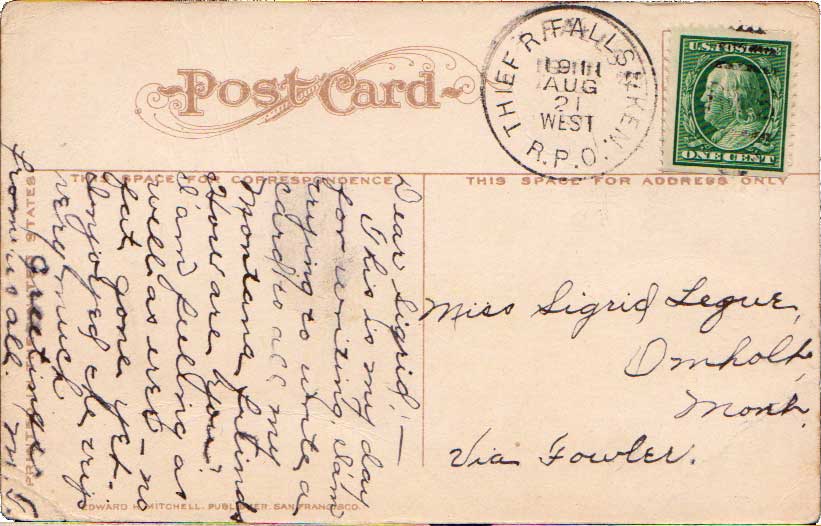 Post Card
THIEF R. FALLS & KEN.
1911
AUG
21
WEST
R.P.O.
U.S. POSTAGE
ONE CENT
THIS SPACE FOR CORRESPONDENCE
THIS SPACE FOR ADDRESS ONLY
Dear Sigrid, —
This is my day
for writing. I am
trying to write a
card to all my
Montana friends
How are you?
I am feeling as
well as ever — no
fat gone yet.
Enjoyed the trip
very much
Greetings
from us all. M. T.
Miss Sigrid Legue,
Omholt,
Mont.
Via Fowler.
EDWARD H. MITCHELL, PUBLISHER, SAN FRANCISCO.
PRINTED STATES